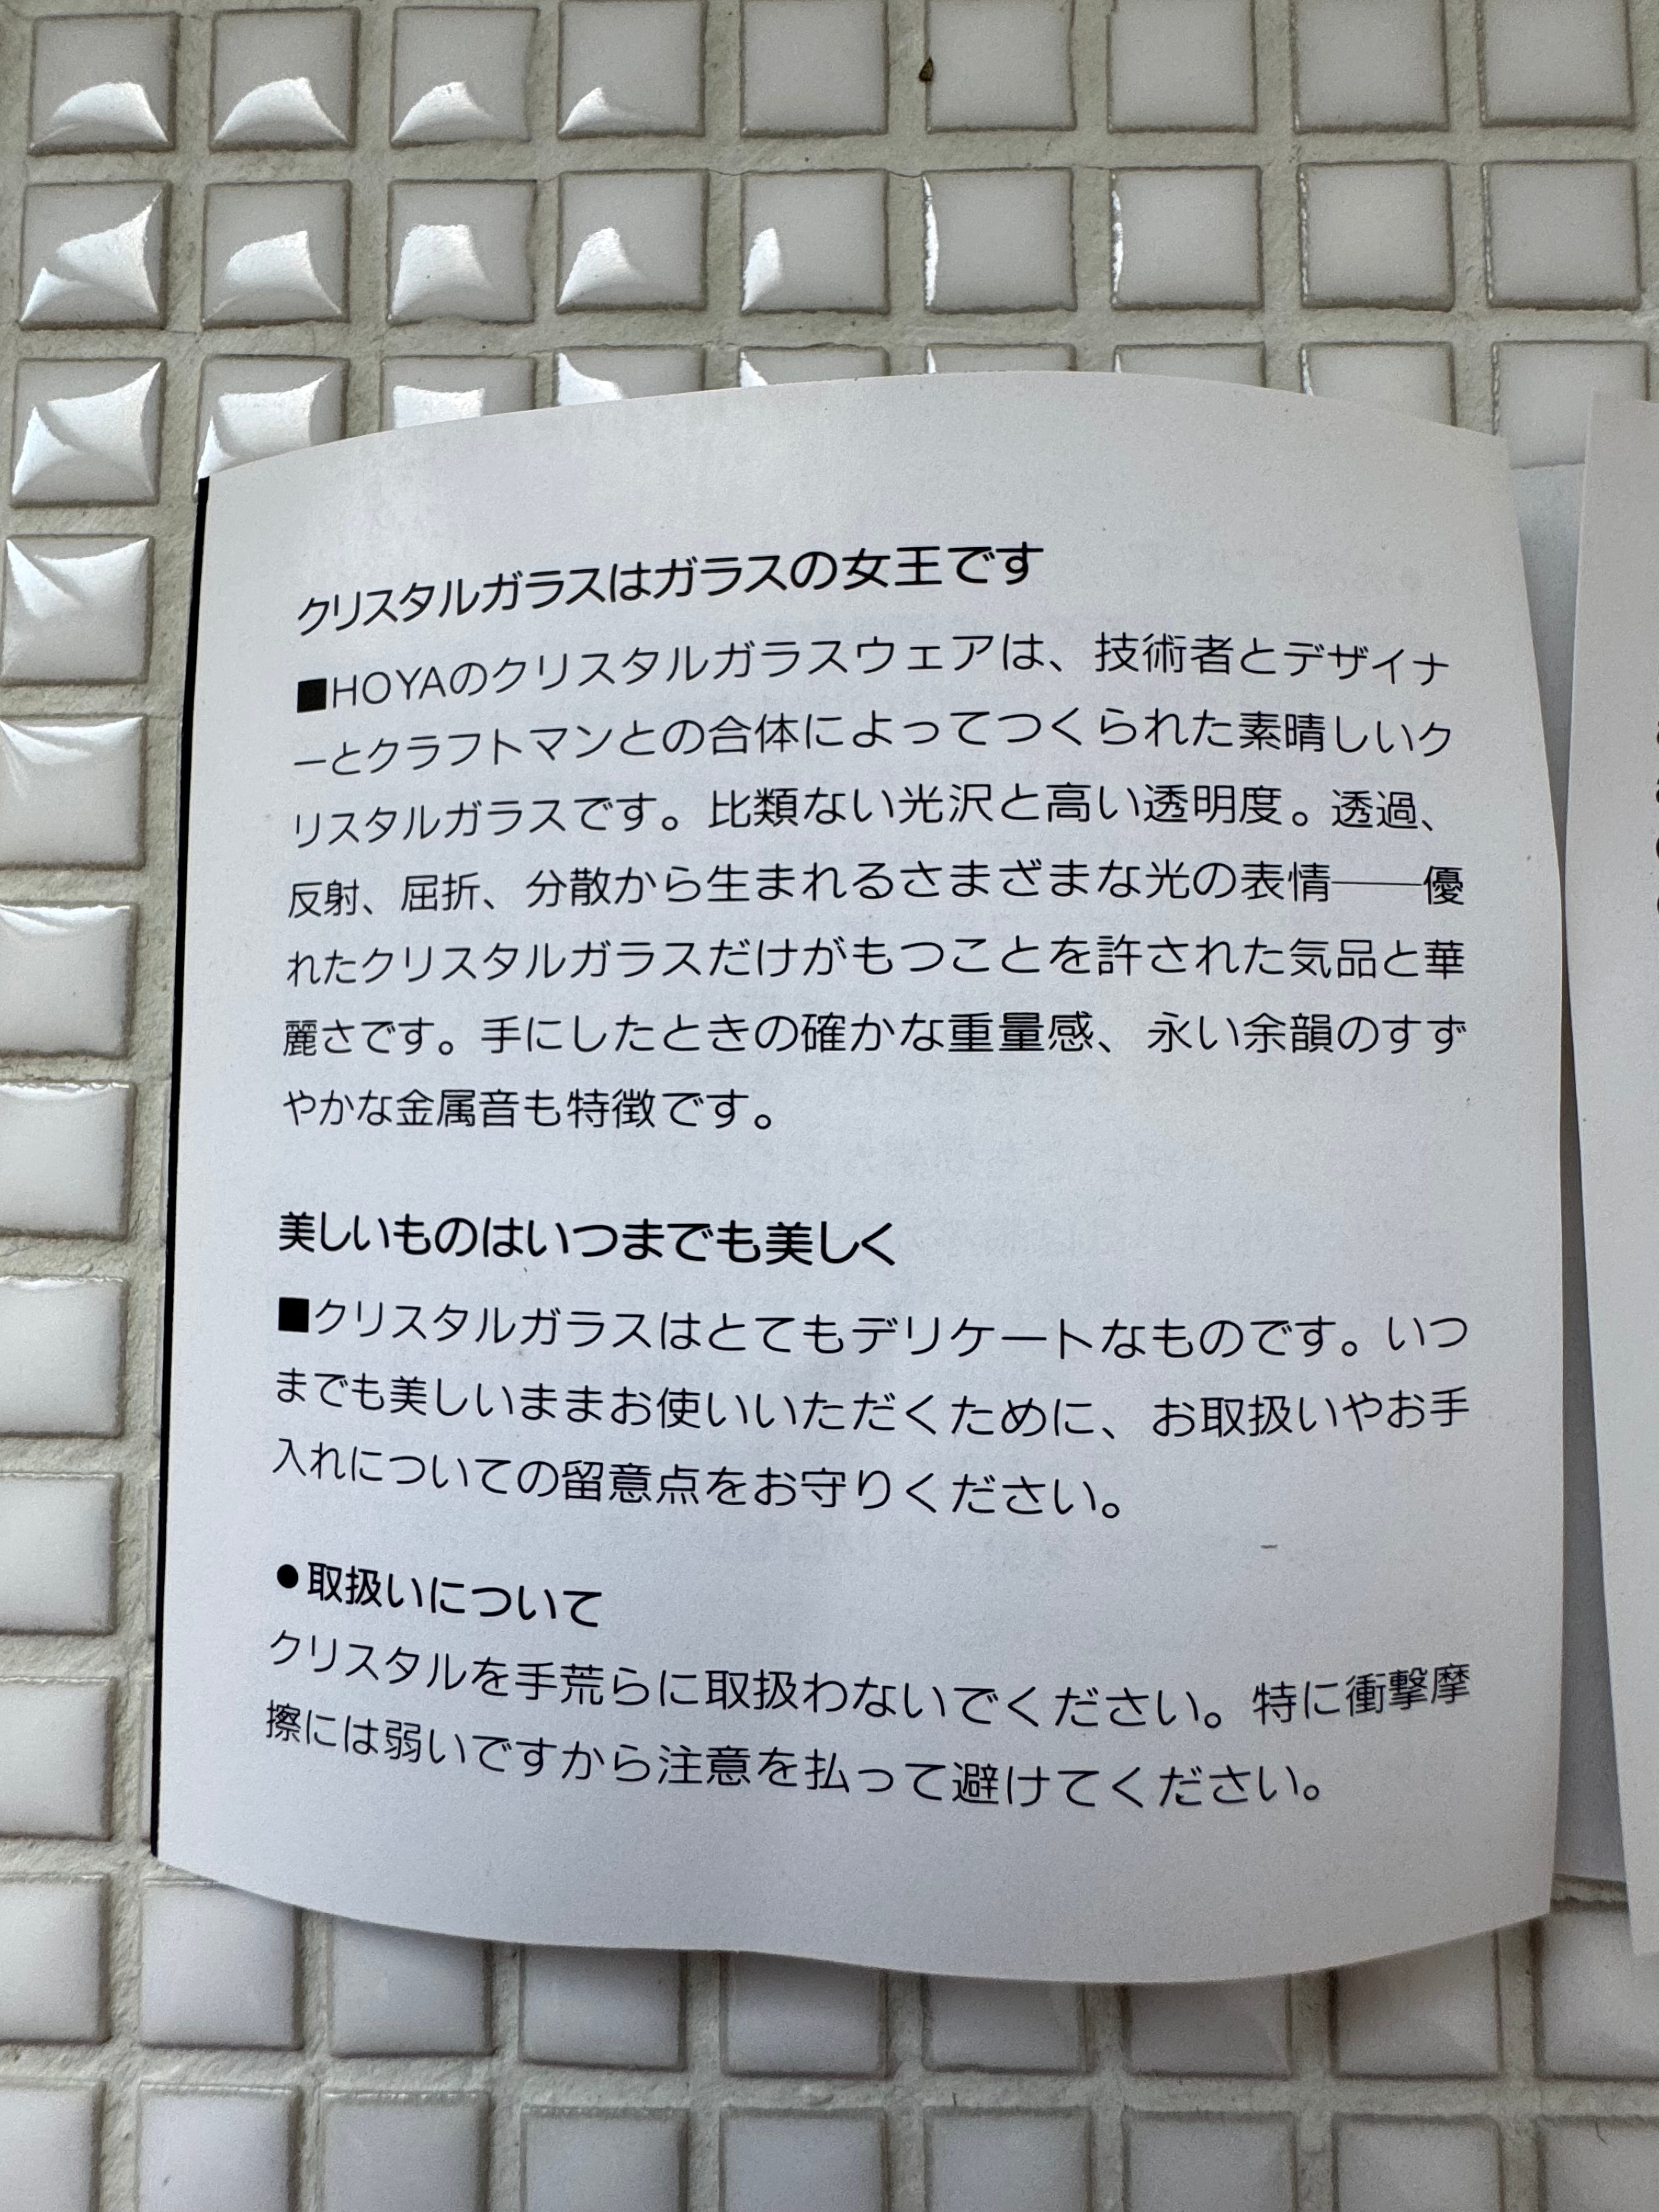 クリスタルガラスはガラスの女王です
■HOYAのクリスタルガラスウェアは、技術者とデザイナ
ーとクラフトマンとの合体によってつくられた素晴しいク
リスタルガラスです。比類ない光沢と高い透明度。透過、
反射、屈折、分散から生まれるさまざまな光の表情──優
れたクリスタルガラスだけがもつことを許された気品と華
麗さです。手にしたときの確かな重量感、永い余韻のすず
やかな金属音も特徴です。
美しいものはいつまでも美しく
■クリスタルガラスはとてもデリケートなものです。いつ
までも美しいままお使いいただくために、お取扱いやお手
入れについての留意点をお守りください。
●取扱いについて
クリスタルを手荒らに取扱わないでください。特に衝撃摩
擦には弱いですから注意を払って避けてください。